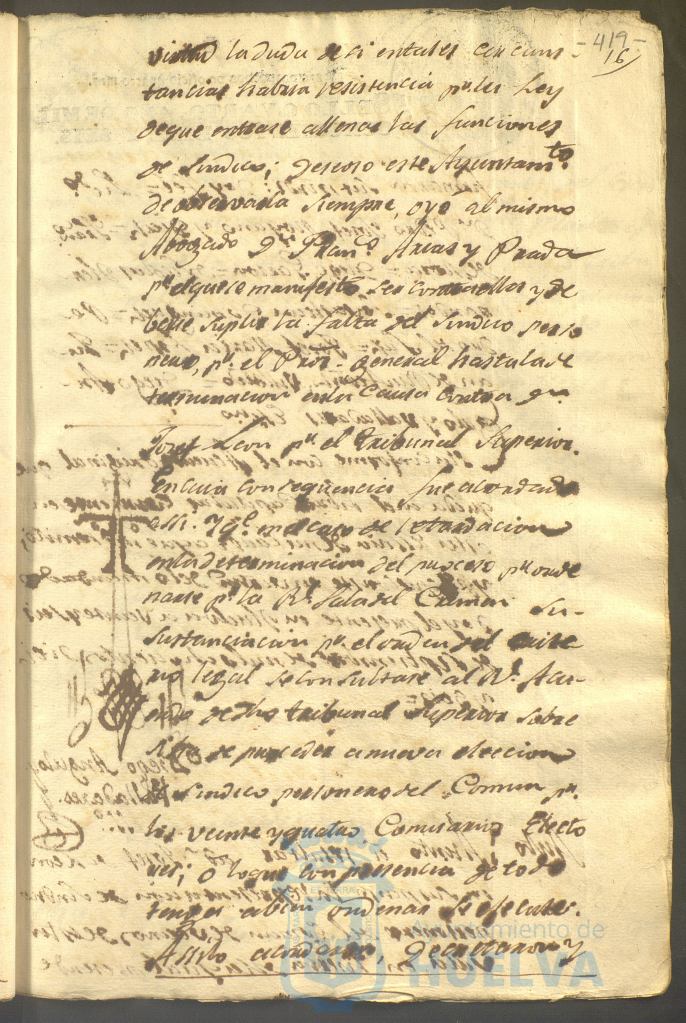 -419-
16
virtud la duda de si entales circuns-
tancias habria resistencia pr. las Ley
de que entrase allenar las funciones
de Sindico; deseoso este Ayuntamto.
de observarla siempre, oyo al mismo
Abogado Dn. Franco. Arias y Prada
pr. elquese manifestó ser
belle suplir la falta del Sindico perso
nero, pr. el Pror. general hastala de
terminacion enla Causa contra Dn.
Josef Leon pr. el tribunal Superior.
En cuia consequencia fue acordado
assi. Yqe. en el caso de retardacion
enla determinacion del proceso pr. orde
narse pr. la Rl. Sala del Crimen su
sustanciacion pr. el orden del
legal se consultase al Rl. Acu-
erdo de dho tribunal Superior sobre
si ha de proceder a nueva eleccion
de Sindico personero del Comun pr.
los veinte y quatro Comisarios Electo
res; o loque con presencia de todo
tenga abien ordenar se execute.
Assilo acordaron, decretaron y
Ayuntamiento de
HUELVA